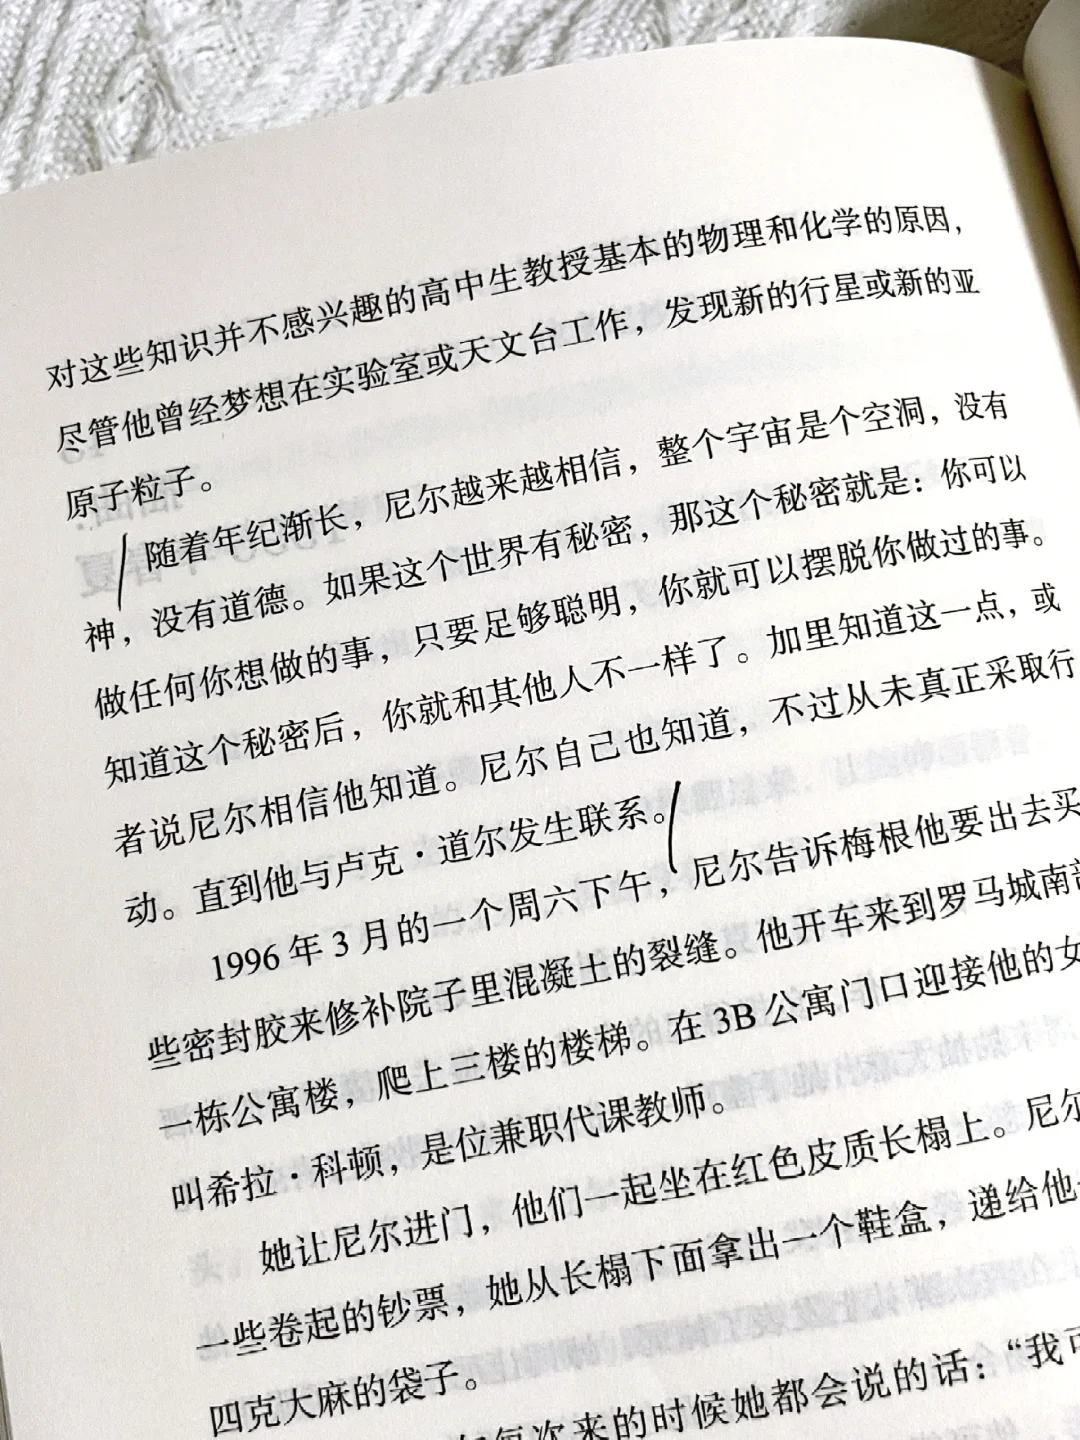 对这些知识并不感兴趣的高中生教授基本的物理和化学的原因，
尽管他曾经梦想在实验室或天文台工作，发现新的行星或新的亚
原子粒子。
随着年纪渐长，尼尔越来越相信，整个宇宙是个空洞，没有
神，没有道德。如果这个世界有秘密，那这个秘密就是：你可以
做任何你想做的事，只要足够聪明，你就可以摆脱你做过的事。
知道这个秘密后，你就和其他人不一样了。加里知道这一点，或
者说尼尔相信他知道。尼尔自己也知道，不过从未真正采取行
动。直到他与卢克·道尔发生联系。
1996年3月的一个周六下午，尼尔告诉梅根他要出去买
些密封胶来修补院子里混凝土的裂缝。他开车来到罗马城南部
一栋公寓楼，爬上三楼的楼梯。在3B公寓门口迎接他的女
叫希拉·科顿，是位兼职代课教师。
她让尼尔进门，他们一起坐在红色皮质长榻上。尼尔
一些卷起的钞票，她从长榻下面拿出一个鞋盒，递给他
四克大麻的袋子。
每次来的时候她都会说的话：“我可